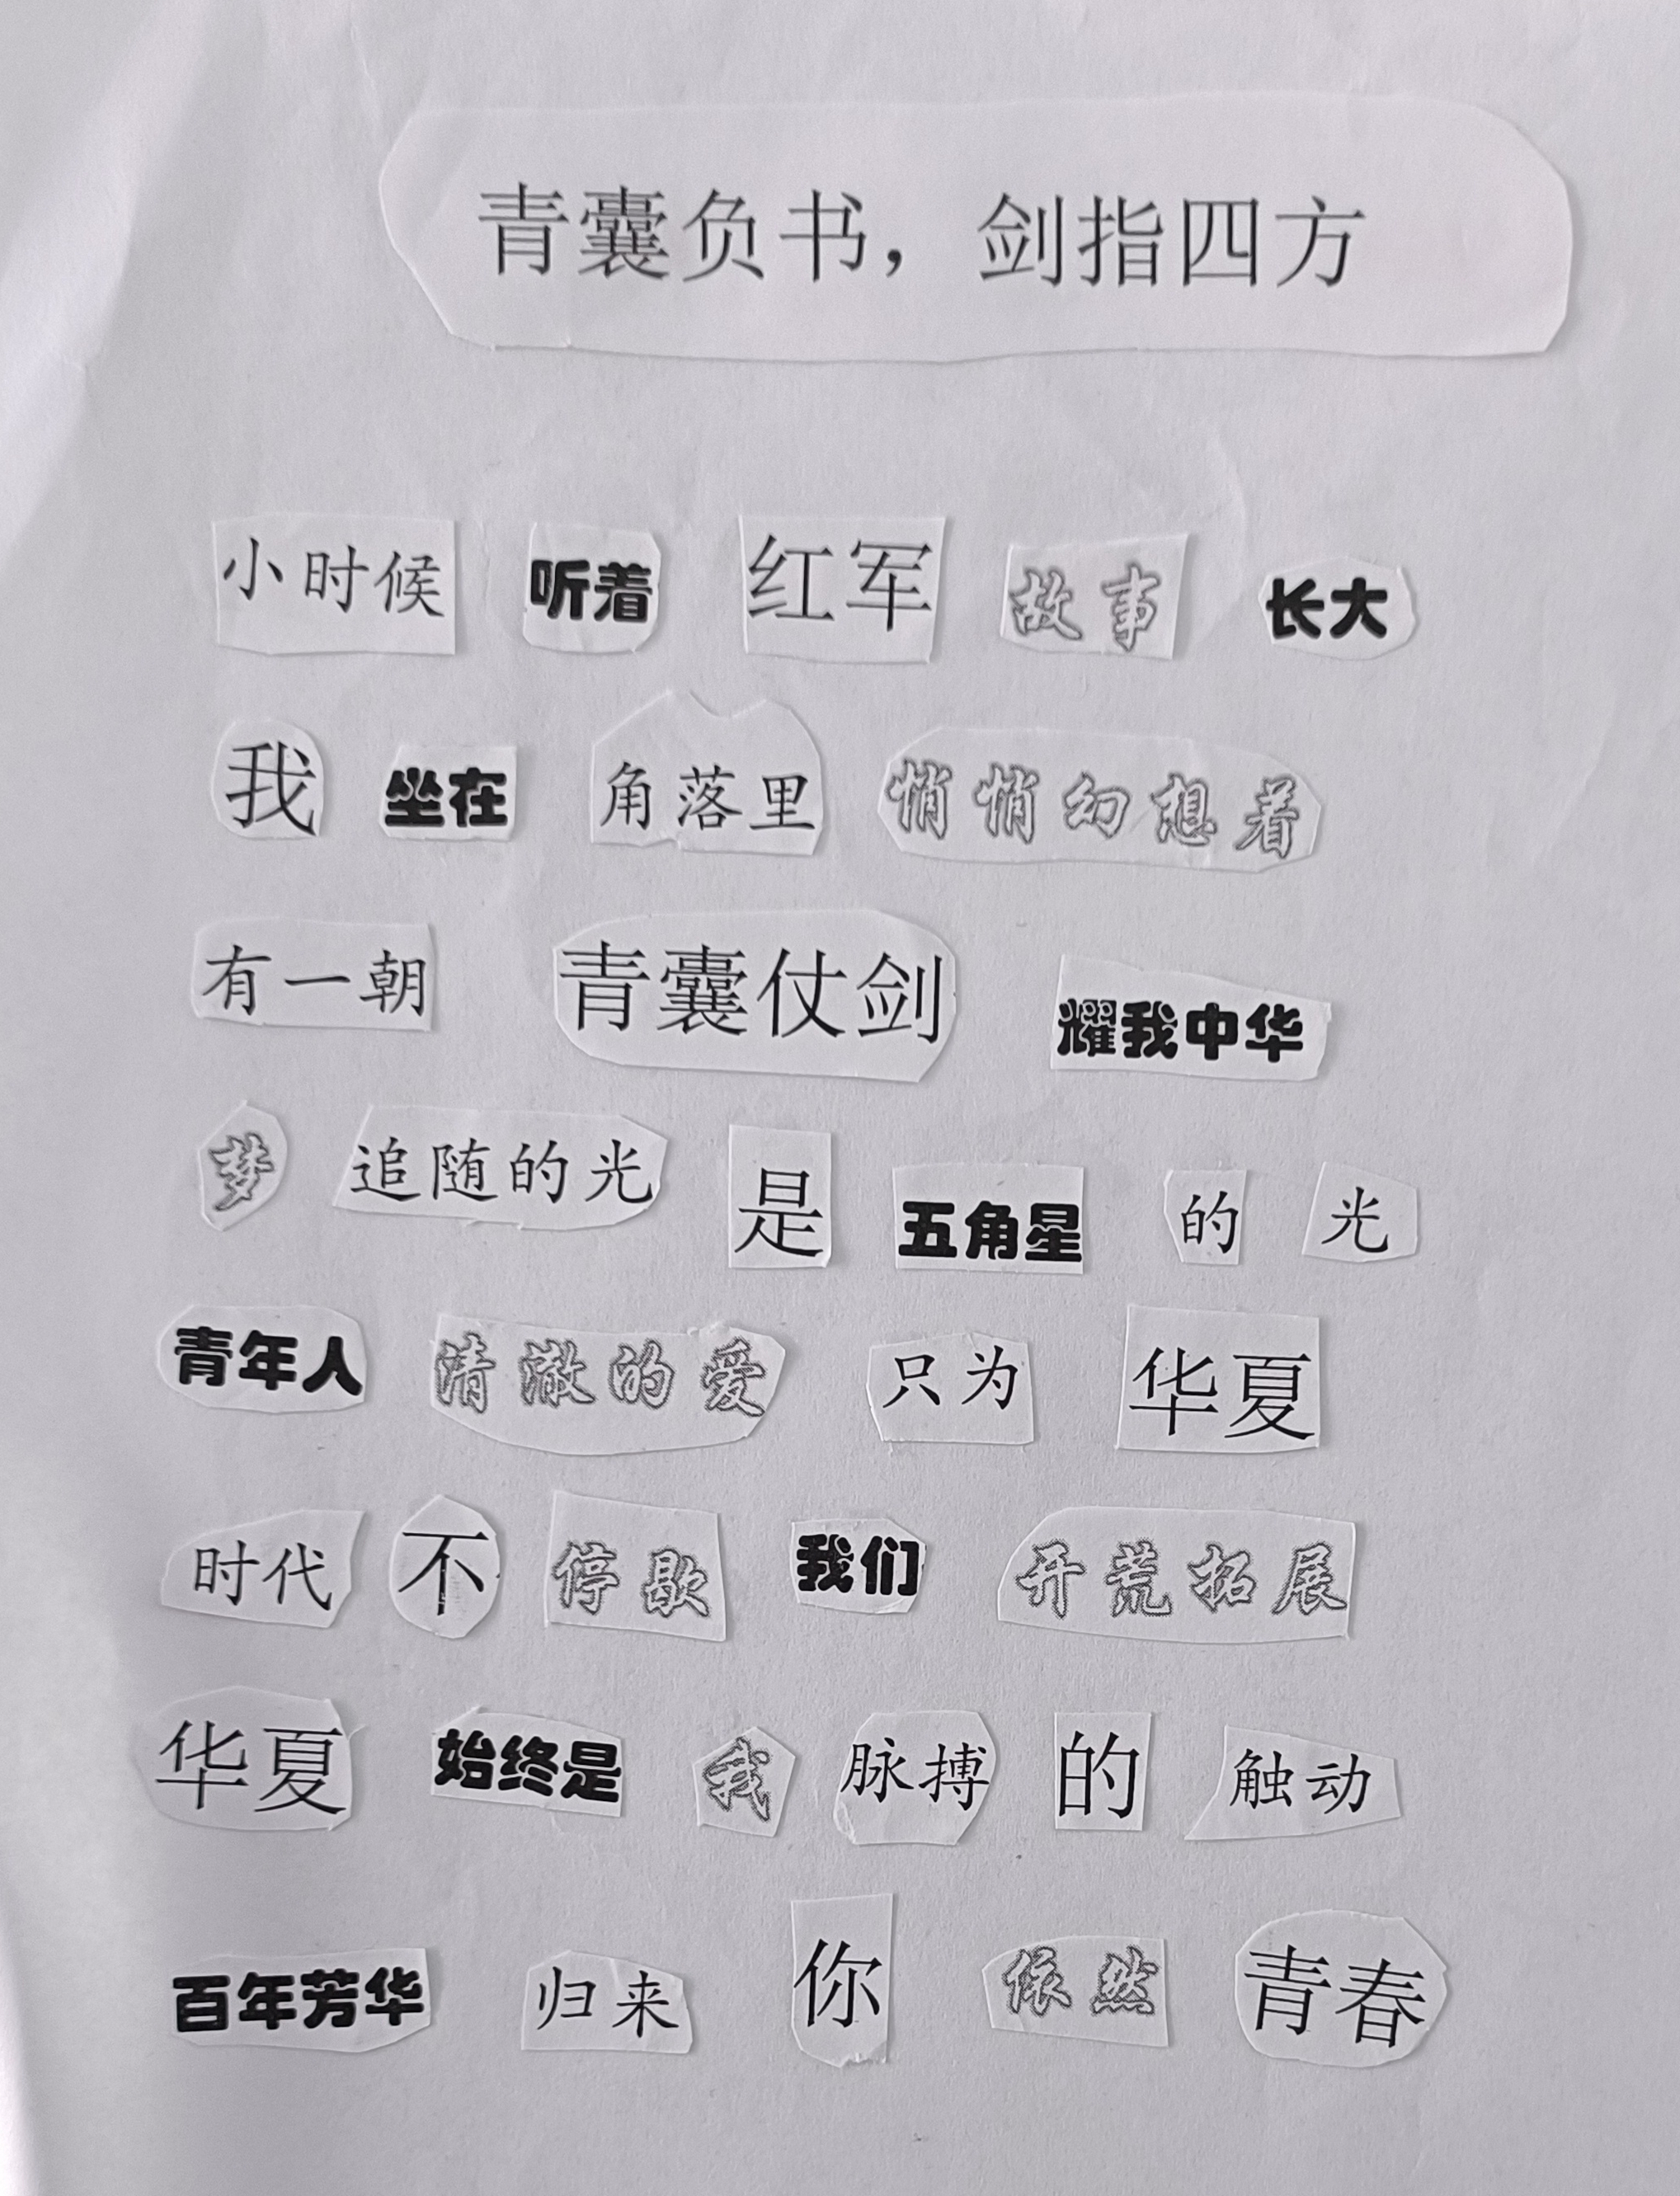 青囊负书，剑指四方
小时候 听着 红军 故事 长大
我 坐在 角落里 悄悄幻想着
有一朝 青囊仗剑 耀我中华
梦 追随的光 是 五角星 的 光
青年人 清澈的爱 只为 华夏
时代 不 停歇 我们 开荒拓展
华夏 始终是 我 脉搏 的 触动
百年芳华 归来 你 依然 青春